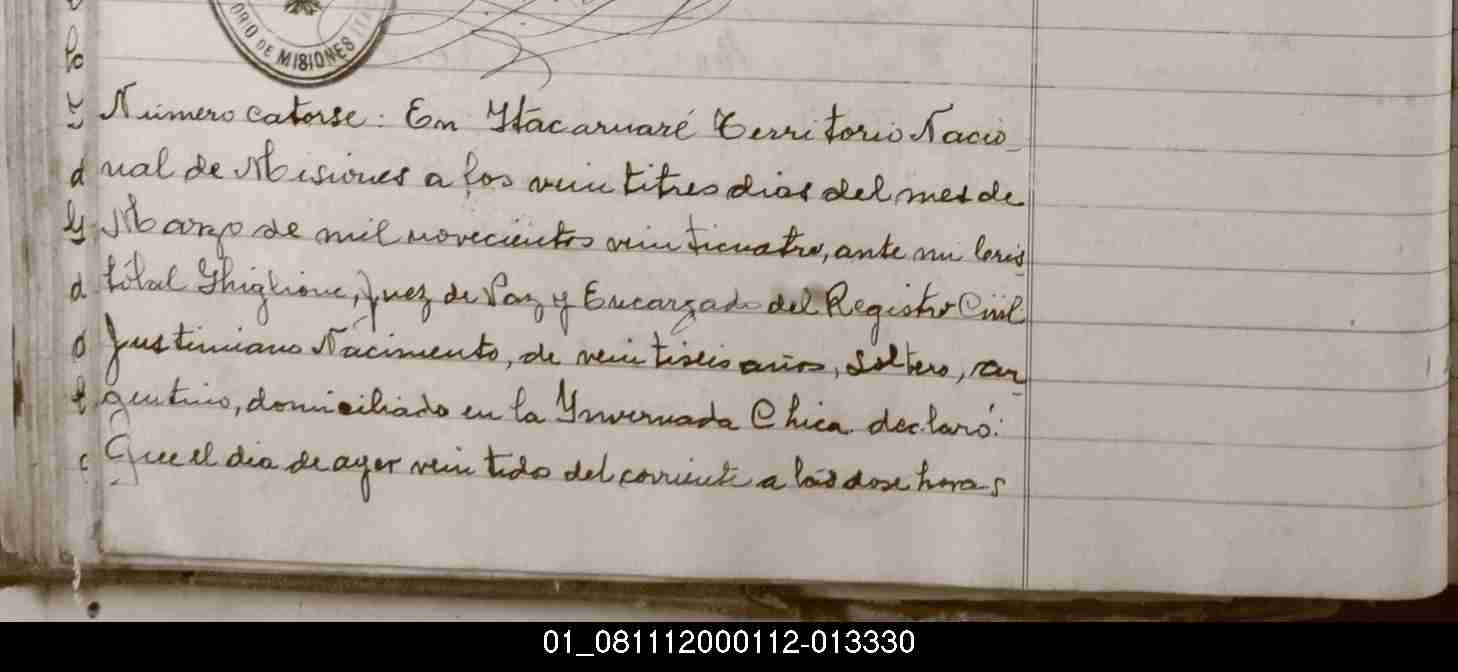 ORIO DE MISIONES ITA
Número catorse: En Ytacaruaré Territorio Nacio_
nal de Misiones a los veintitres dias del mes de
Marzo de mil novecientos veinticuatro, ante mi Cris
tóbal Ghiglione, Juez de Paz y Encargado del Registro Civil
Justiniano Nacimento, de veintiseis años, Soltero, ar_
gentino, domiciliado en la Ynvernada Chica declaró:
Que el dia de ayer veintido del corriente a las dose horas
01_081112000112-013330